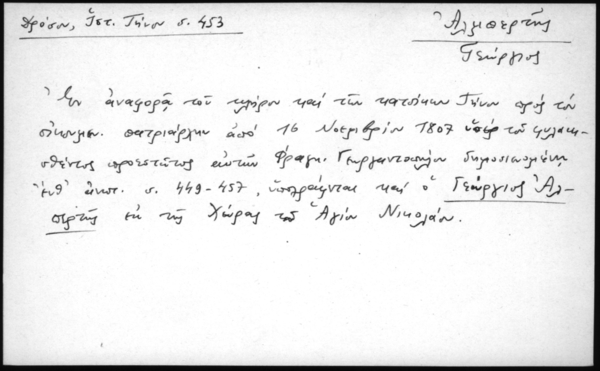 Δρόσου, Ἱστ. Τήνου σ. 453
Ἀλιπερτῆς
Γεώργιος
Ἐν ἀναφορᾷ τοῦ κλήρου καὶ τῶν κατοίκων Τήνου πρός τόν
οἰκουμεν. πατριάρχην ἀπό 16 Νοεμβρίου 1807 ὑπέρ τοῦ φυλακι-
σθέντος προεστῶτος αὐτῶν Φραγκ. Γεωργαντοπούλου δημοσιευομένῃ
ἔνθ' ἀνωτ. σ. 449-457, ὑπογράφεται καί ὁ Γεώργιος Ἀλ-
περτῆς ἐκ τῆς Χώρας τοῦ Ἁγίου Νικολάου.